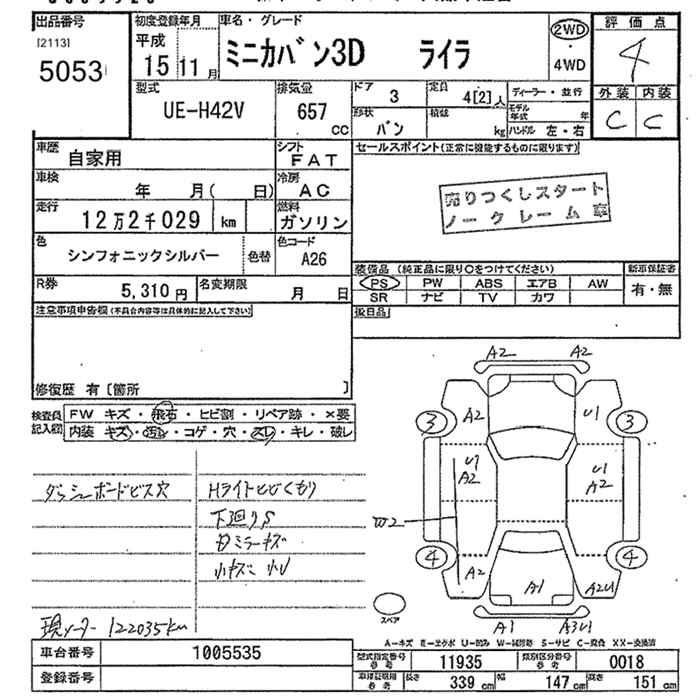 出品番号
[2113]
5053
初度登録年月
平成
15 11 月
車名・グレード
ミニカバン3D ライラ
2WD
・
4WD
評価点
4
外装 内装
C C
型式
UE-H42V
排気量
657 CC
ドア
3
定員
4[2]人
ディーラー・並行
形状
バン
積載
kg
モデル年式 年
ハンドル 左・右
車歴
自家用
シフト
FAT
車検
年 月( 日)
冷房
AC
走行
12万2千029 km
燃料
ガソリン
色
シンフォニックシルバー
色替
色コード
A26
R券
5,310 円
名変期限
月 日
セールスポイント(正常に機能するものに限ります)
売りつくしスタート
ノークレーム車
装備品 (純正品に限り○をつけてください)
PS PW ABS エアB AW
SR ナビ TV カワ
新車保証書
有・無
後日品
注意事項申告欄(不具合内容等は具体的に記入して下さい)
修復歴 有〔箇所 〕
検査員記入欄
FW キズ・飛石・ヒビ割・リペア跡・×要
内装 キズ・汚レ・コゲ・穴・スレ・キレ・破レ
ダッシュボードビス穴
Hライトヒビくもり
下廻りS
ミラーキズ
小キズ 小U
現メーター 122035km
A2 A2
3 A2 U1 3
U1 A2
U1 A2
W2
4 A2 A1 A2U1 4
A1 A3U1
スペア
A-キズ E-エクボ U-凹み W-補修跡 S-サビ C-腐食 XX-交換済
車台番号
1005535
登録番号
型式指定番号 参考
11935
類別区分番号 参考
0018
車検証記載 参考
長さ 339 cm
幅 147 cm
高さ 151 cm